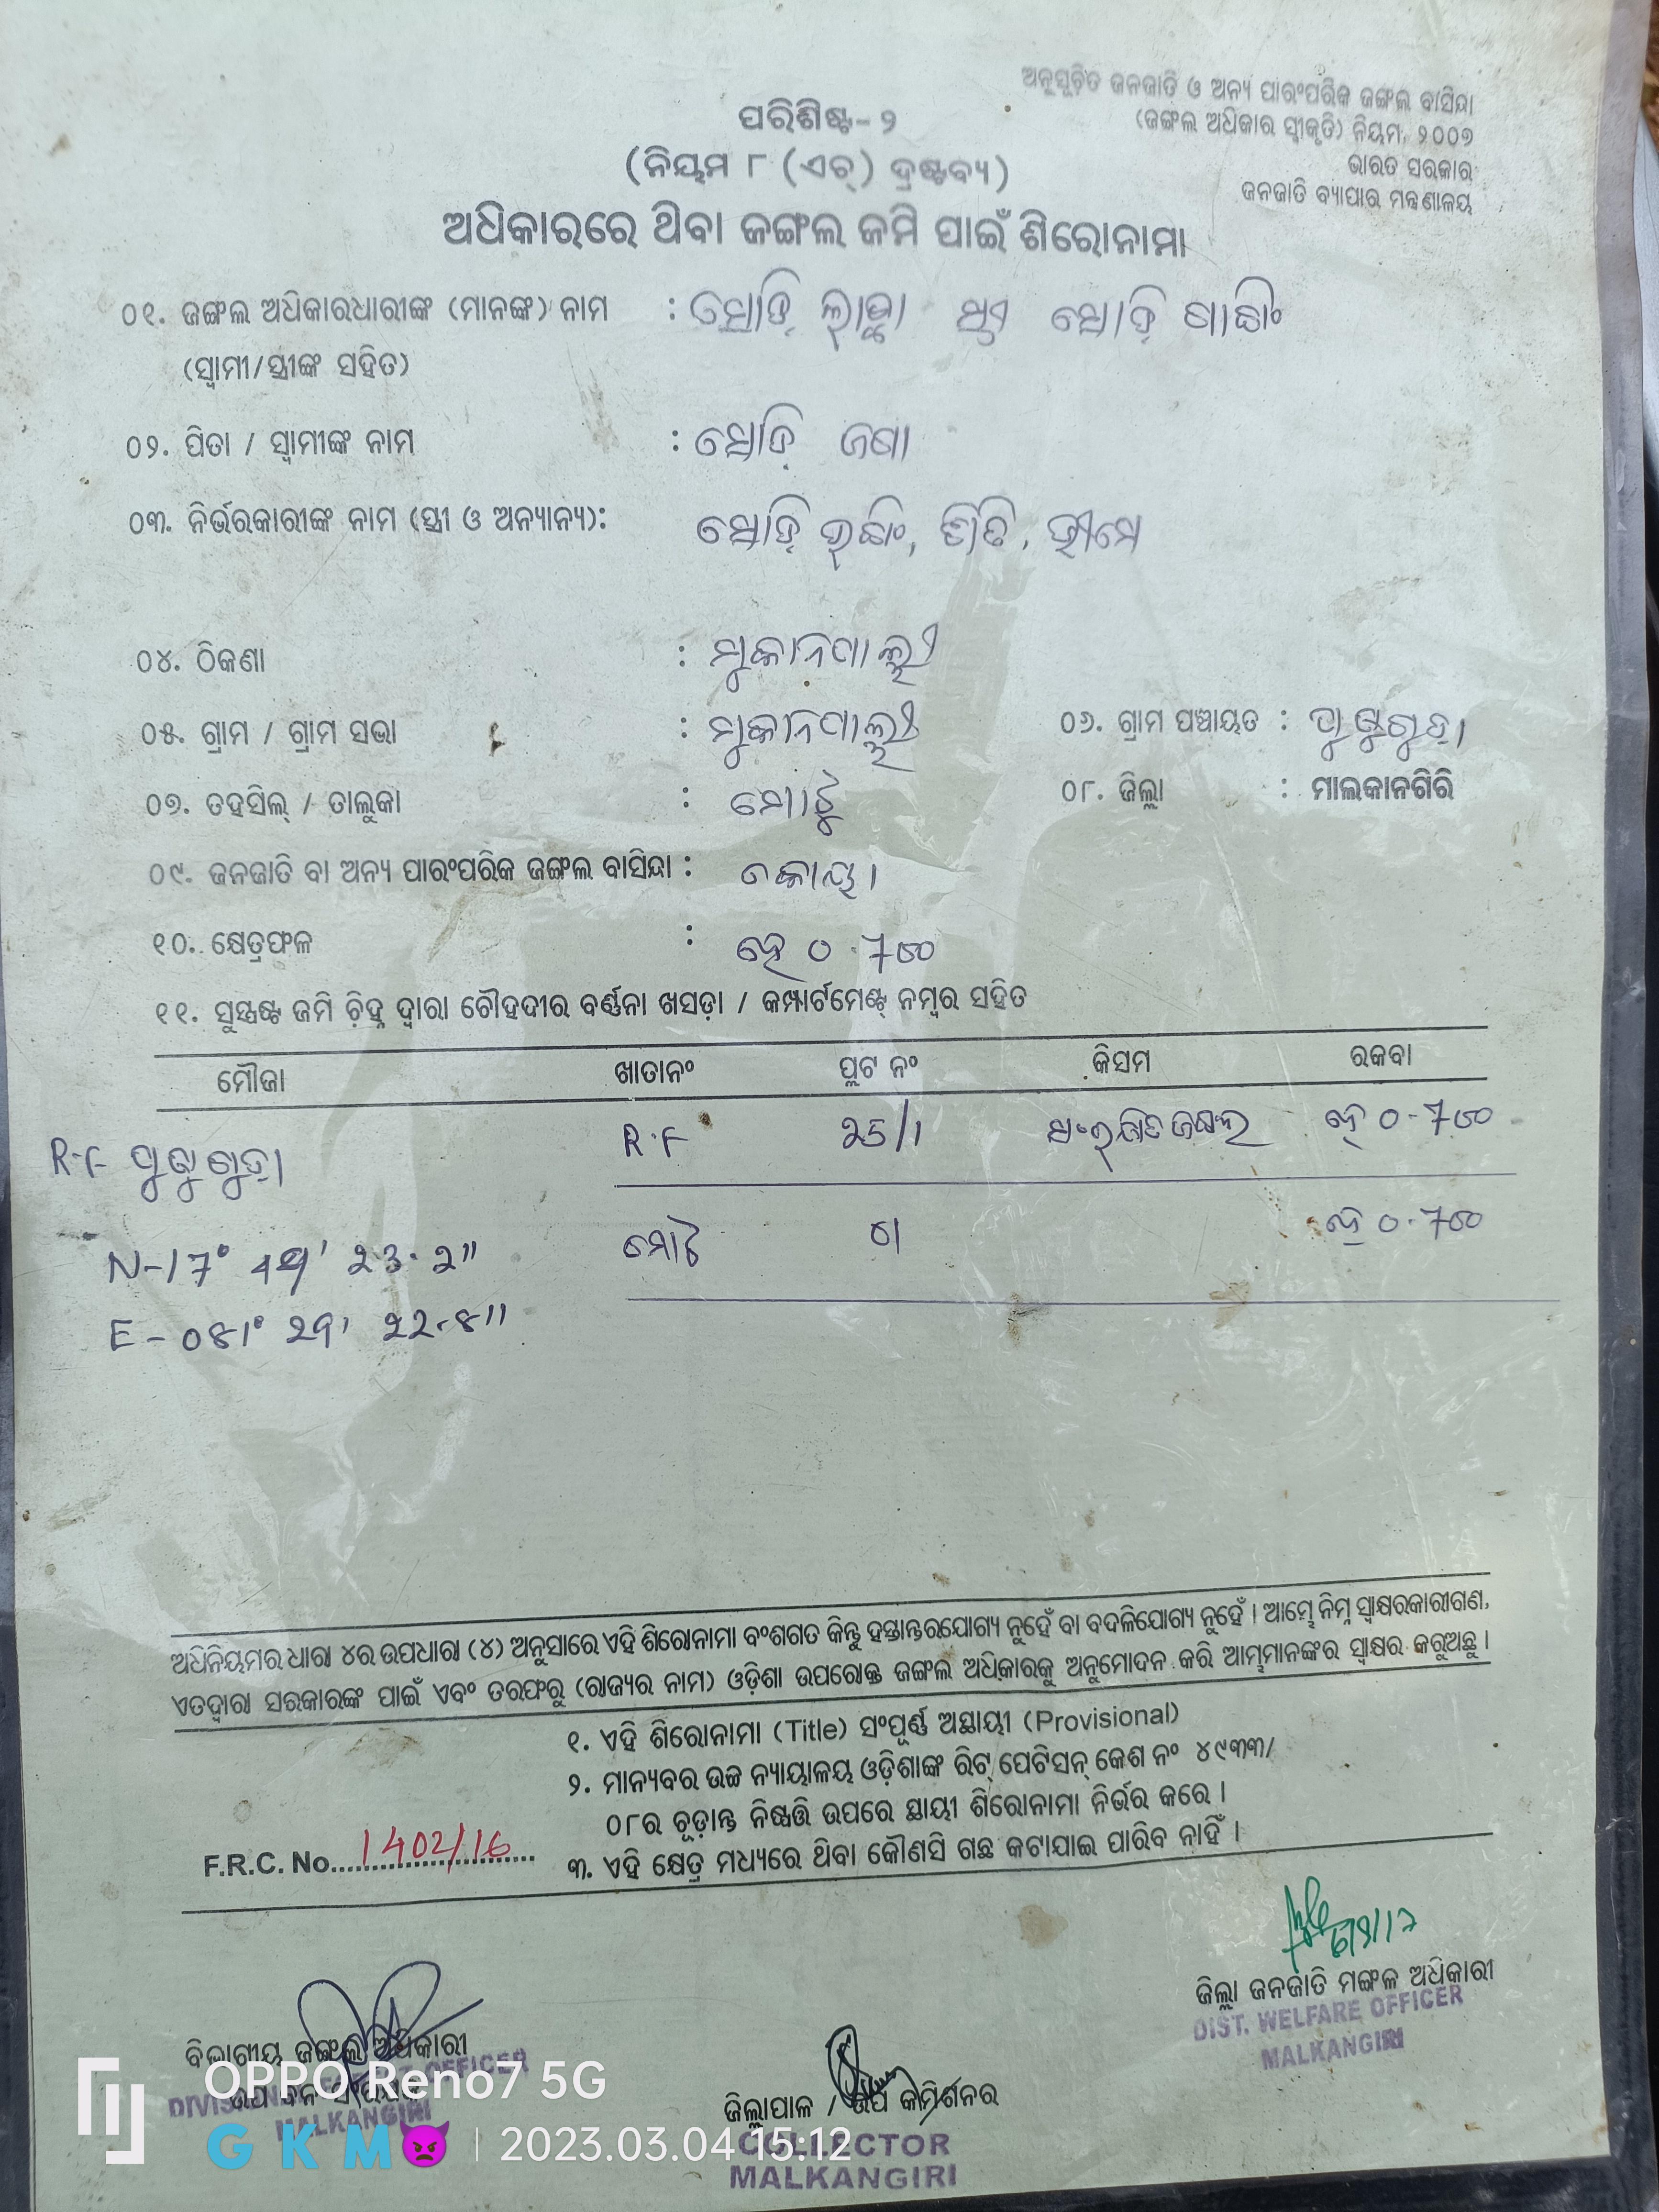 ଅନୁସୂଚିତ ଜନଜାତି ଓ ଅନ୍ୟ ପାରଂପରିକ ଜଙ୍ଗଲ ବାସିନ୍ଦା
(ଜଙ୍ଗଲ ଅଧିକାର ସ୍ୱୀକୃତି) ନିୟମ, ୨୦୦୭
ଭାରତ ସରକାର
ଜନଜାତି ବ୍ୟାପାର ମନ୍ତ୍ରଣାଳୟ
ପରିଶିଷ୍ଟ- ୨
(ନିୟମ ୮ (ଏଚ୍) ଦ୍ରଷ୍ଟବ୍ୟ)
ଅଧିକାରରେ ଥିବା ଜଙ୍ଗଲ ଜମି ପାଇଁ ଶିରୋନାମା
୦୧. ଜଙ୍ଗଲ ଅଧିକାରଧାରୀଙ୍କ (ମାନଙ୍କ) ନାମ :
(ସ୍ୱାମୀ/ସ୍ତ୍ରୀଙ୍କ ସହିତ)
୦୨. ପିତା / ସ୍ୱାମୀଙ୍କ ନାମ :
୦୩. ନିର୍ଭରକାରୀଙ୍କ ନାମ (ସ୍ତ୍ରୀ ଓ ଅନ୍ୟାନ୍ୟ):
୦୪. ଠିକଣା : ମୁକାନପାଲ୍ଲୀ
୦୫. ଗ୍ରାମ / ଗ୍ରାମ ସଭା : ମୁକାନପାଲ୍ଲୀ ୦୬. ଗ୍ରାମ ପଞ୍ଚାୟତ :
୦୭. ତହସିଲ୍ / ତାଲୁକା : ମୋଟୁ ୦୮. ଜିଲ୍ଲା : ମାଲକାନଗିରି
୦୯. ଜନଜାତି ବା ଅନ୍ୟ ପାରଂପରିକ ଜଙ୍ଗଲ ବାସିନ୍ଦା : କୋୟା
୧୦. କ୍ଷେତ୍ରଫଳ : ହେ
୧୧. ସୁସ୍ପଷ୍ଟ ଜମି ଚିହ୍ନ ଦ୍ୱାରା ଚୌହଦୀର ବର୍ଣ୍ଣନା ଖସଡ଼ା / କମ୍ପାର୍ଟମେଣ୍ଟ୍ ନମ୍ବର ସହିତ
ମୌଜା ଖାତାନଂ ପ୍ଲଟ ନଂ କିସମ ରକବା
R.F R.F 25/1 ସଂରକ୍ଷିତ ଜଙ୍ଗଲ ହେ
ମୋଟ ହେ
N-17°
E-
ଅଧିନିୟମର ଧାରା ୪ର ଉପଧାରା (୪) ଅନୁସାରେ ଏହି ଶିରୋନାମା ବଂଶଗତ କିନ୍ତୁ ହସ୍ତାନ୍ତରଯୋଗ୍ୟ ନୁହେଁ ବା ବଦଳିଯୋଗ୍ୟ ନୁହେଁ । ଆମ୍ଭେ ନିମ୍ନ ସ୍ୱାକ୍ଷରକାରୀଗଣ,
ଏତଦ୍ୱାରା ସରକାରଙ୍କ ପାଇଁ ଏବଂ ତରଫରୁ (ରାଜ୍ୟର ନାମ) ଓଡ଼ିଶା ଉପରୋକ୍ତ ଜଙ୍ଗଲ ଅଧିକାରକୁ ଅନୁମୋଦନ କରି ଆମ୍ଭମାନଙ୍କର ସ୍ୱାକ୍ଷର କରୁଅଛୁ ।
୧. ଏହି ଶିରୋନାମା (Title) ସଂପୂର୍ଣ୍ଣ ଅସ୍ଥାୟୀ (Provisional)
୨. ମାନ୍ୟବର ଉଚ୍ଚ ନ୍ୟାୟାଳୟ ଓଡ଼ିଶାଙ୍କ ରିଟ୍ ପେଟିସନ୍ କେଶ ନଂ ୪୯୩୩/
୦୮ର ଚୂଡ଼ାନ୍ତ ନିଷ୍ପତ୍ତି ଉପରେ ସ୍ଥାୟୀ ଶିରୋନାମା ନିର୍ଭର କରେ ।
୩. ଏହି କ୍ଷେତ୍ର ମଧ୍ୟରେ ଥିବା କୌଣସି ଗଛ କଟାଯାଇ ପାରିବ ନାହିଁ ।
F.R.C. No. 1402/16
ଜିଲ୍ଲା ଜନଜାତି ମଙ୍ଗଳ ଅଧିକାରୀ
DIST. WELFARE OFFICER
MALKANGIRI
ବିଭାଗୀୟ ଜଙ୍ଗଲ ଅଧିକାରୀ
OFFICER
MALKANGIRI
ଜିଲ୍ଲାପାଳ / ଉପ କମିଶନର
COLLECTOR
MALKANGIRI
OPPO Reno7 5G
G K M😈 | 2023.03.04 15:12